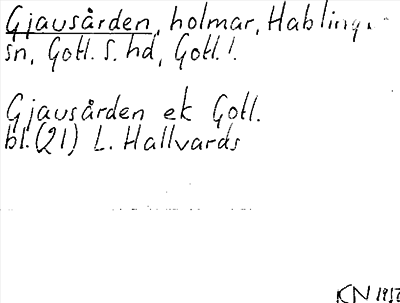 Gjausården, holmar, Hablingbo
sn, Gotl. S. hd, Gotl.!
Gjausården ek Gotl.
bl. (21) L. Hallvards
KN